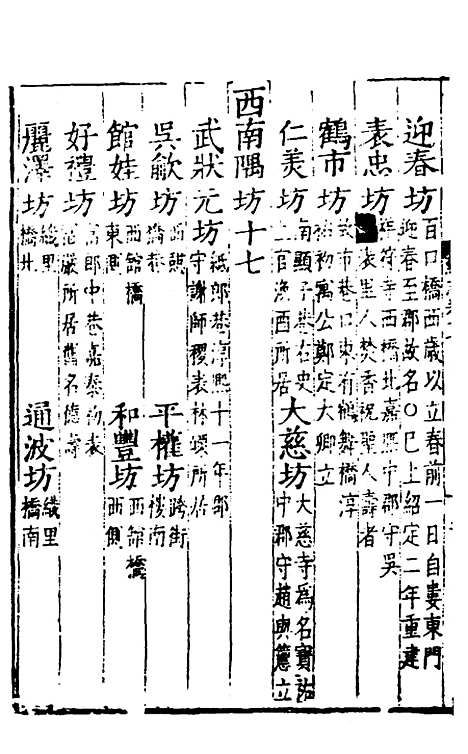 迎春坊 百口橋西歲以立春前一日自婁東門迎春至郡故名〇巳上紹定二年重建
表忠坊 祥符寺西橋北嘉熙中郡守吳表里人焚香祝聖人壽者
鶴市坊 市巷口東有鶴舞橋淳祐初寓公鄭定大卿立
仁美坊 南顯子巷右史上官渙酉所居 大慈坊 大慈寺爲名寶祐中郡守趙與𥲅立
西南隅坊十七
武狀元坊 紙郎巷淳熙十一年郡守謝師稷表林𡽪所居
吳歈坊 西憩橋巷 平權坊 跨街樓南
館娃坊 西館橋東南 和豐坊 西館橋西側
好禮坊 富郎中巷嘉泰初表嚴所居舊名德壽
麗澤坊 織里橋北 通波坊 織里橋南